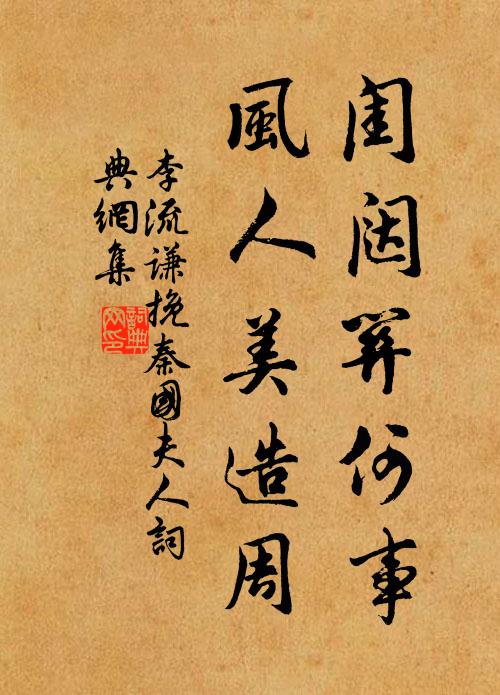 閨閫關何事
風人美造周
李流謙挽秦國夫人詞
典網集
詞典
网印